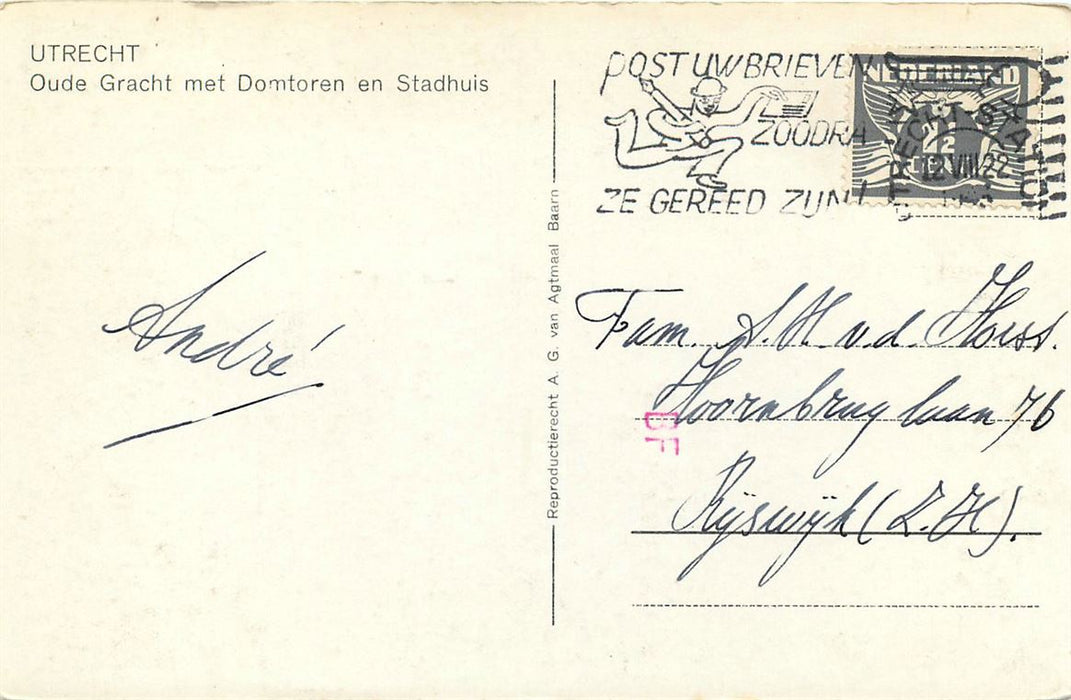 UTRECHT
Oude Gracht met Domtoren en Stadhuis
André
Reproductierecht A. G. van Agtmaal Baarn
POST UW BRIEVEN
ZOODRA
ZE GEREED ZIJN!
NEDERLAND
UTRECHT-STATION
12 VIII 22
Fam. S. H. v.d. Horst.
Hoornbrug laan 76
BF
Rijswijk (Z.H).